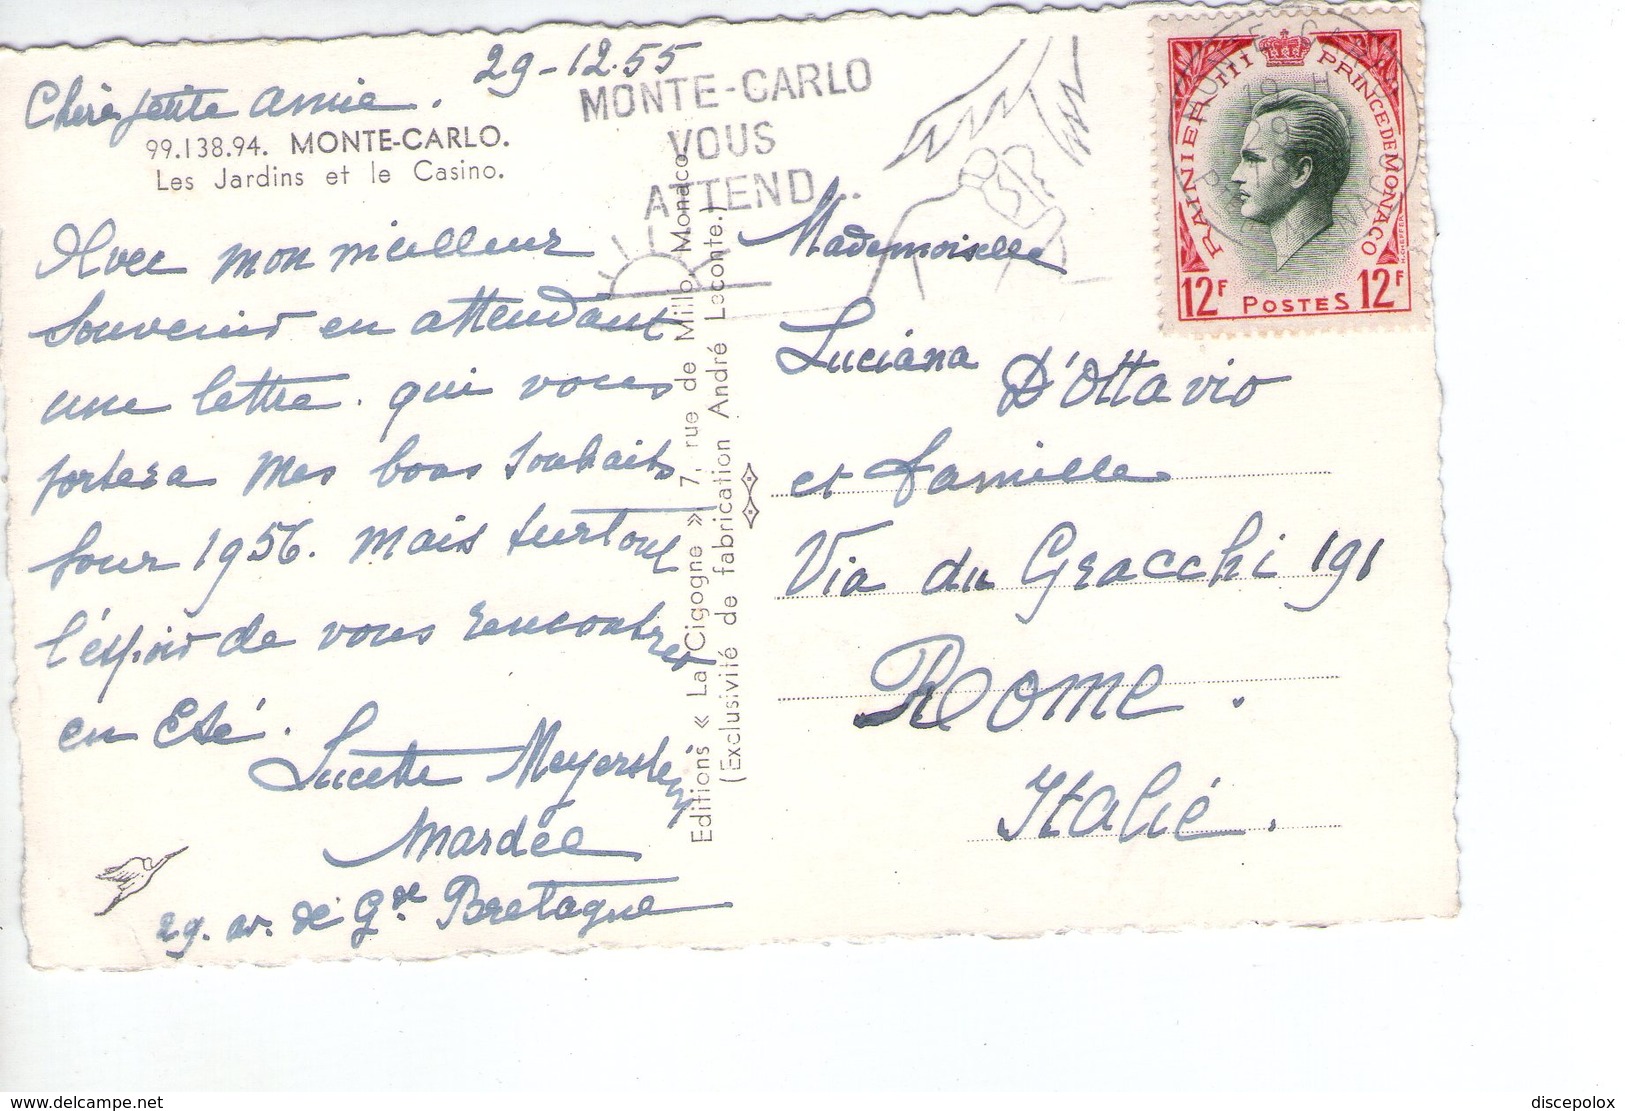 29-12.55
Chère petite amie.
99.138.94. MONTE-CARLO.
Les Jardins et le Casino.
Avec mon meilleur
souvenir en attendant
une lettre. qui vous
portera mes bons souhaits
pour 1956. mais surtout
l'éspoir de vous rencontrer
en Eté.
Lucette Meyerstein
Mardée
29. av. de Gde Bretagne
Editions « La Cigogne » 7, rue de Millo, Monaco
(Exclusivité de fabrication André Leconte.)
MONTE-CARLO
VOUS
ATTEND...
RAINIER III PRINCE DE MONACO
H. CHEFFER
12F POSTES 12F
MONTE-CARLO
19 H
29
Mademoiselle
Luciana D'Ottavio
et famille
Via du Gracchi 191
Rome.
Italié.
delcampe.net
discepolox